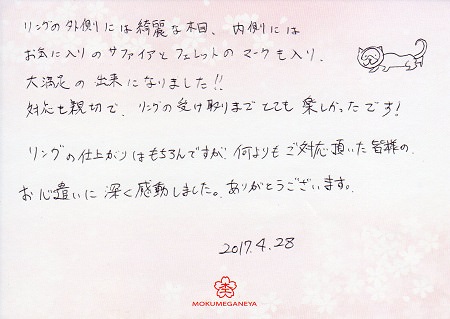 リングの外側には綺麗な木目、内側には
お気に入りのサファイアとフェレットのマークも入り、
大満足の出来になりました!!
対応も親切で、リングの受け取りまでとても楽しかったです!
リングの仕上がりはもちろんですが、何よりもご対応頂いた皆様の、
お心遣いに深く感動しました。ありがとうございます。
2017.4.28
MOKUMEGANEYA